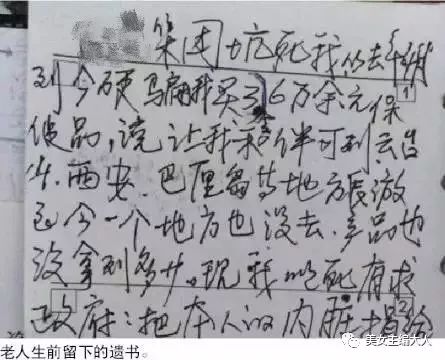 集团坑死我从去年
到今硬骗我买了6万余元保
健品,说让我和老伴可到云台
山.西安.巴厘岛等地方旅游
到今一个地方也没去.产品也
没拿到多少.现我以死有求
政府:把本人的内脏
老人生前留下的遗书。
美女主编大人